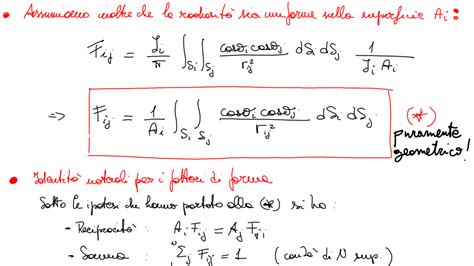 • Assumiamo inoltre che la radiosità sia uniforme sulla superficie Ai:
Fij = Ji/π ∫Si ∫Sj cosθi cosθj / rij² dSi dSj 1/(Ji Ai)
=> Fij = 1/Ai ∫Si ∫Sj cosθi cosθj / rij² dSi dSj (*)
puramente
geometrico!
• Identità notevoli per i fattori di forma
Sotto le ipotesi che hanno portato alla (*) si ha:
- Reciprocità: Ai Fij = Aj Fji
- Somma: Σj Fij = 1 (cavità di N sup.)